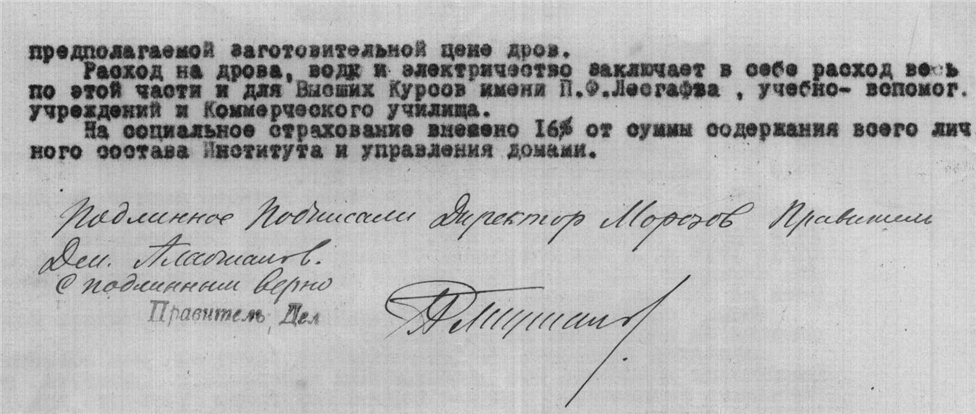 предполагаемой заготовительной цене дров.
Расход на дрова, воду и электричество заключает в себе расход весь
по этой части и для Высших Курсов имени П.Ф.Лесгафта , учебно- вспомог.
учреждений и Коммерческого училища.
На социальное страхование внесено 16% от суммы содержания всего лич
ного состава Института и управления домами.
Подлинное Подписали Директор Морозов Правитель
Дел.
С подлинным верно
Правитель Дел